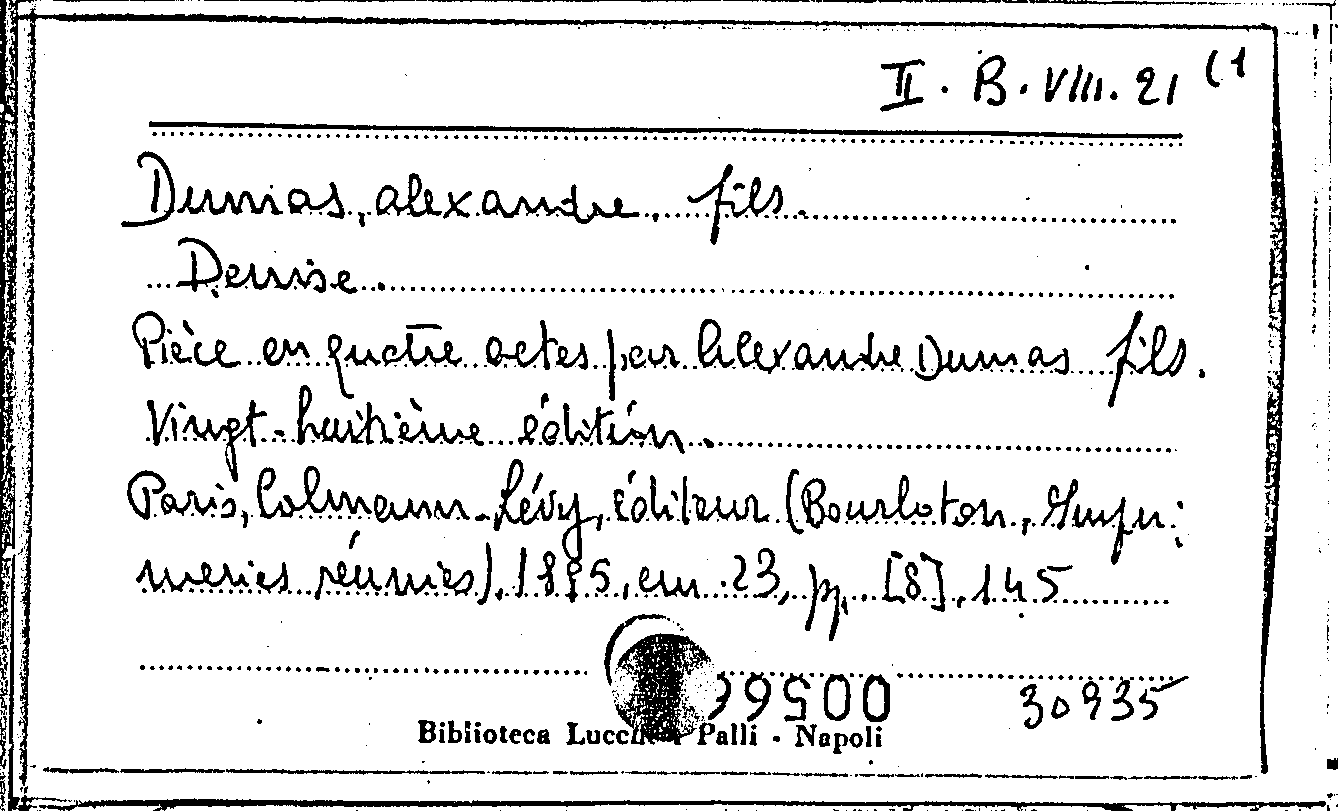 II. B. VIII. 21 (1
Dumas, Alexandre, fils.
Denise.
Pièce en quatre actes par Alexandre Dumas fils.
Vingt-huitième édition.
Paris, Calmann-Lévy, éditeur (Bourloton, Impri:
meries réunies), 1895, cm. 23, pp. [8], 145
30935
Biblioteca Palli - Napoli